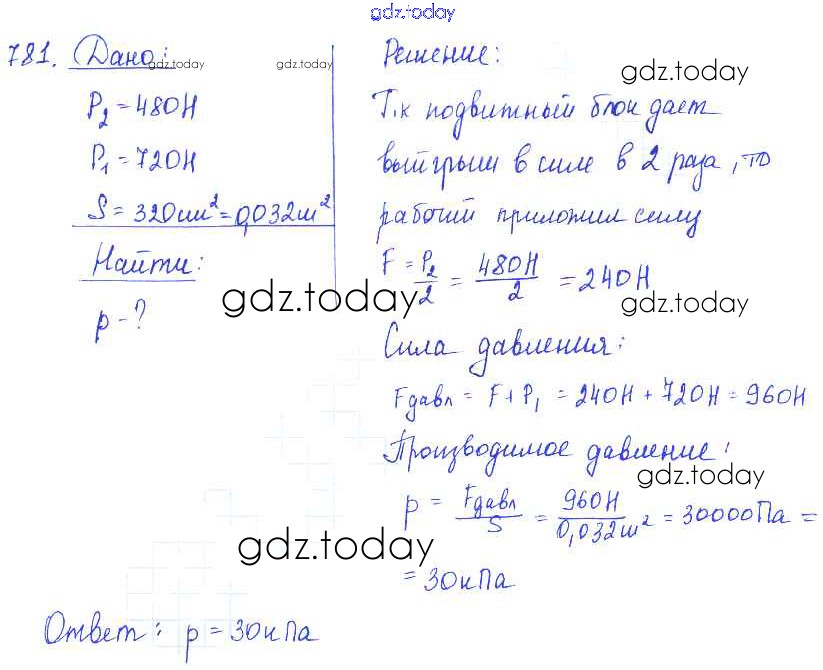 gdz.today
781. Дано:
gdz.today
P₂ = 480Н
P₁ = 720Н
S = 320см² = 0,032м²
Найти:
p - ?
gdz.today
Решение:
gdz.today
Т.к подвижный блок дает
выигрыш в силе в 2 раза, то
рабочий приложил силу
F = P₂/2 = 480Н/2 = 240Н
gdz.today
gdz.today
Сила давления:
Fдавл = F + P₁ = 240Н + 720Н = 960Н
Производимое давление:
gdz.today
p = Fдавл/S = 960Н/0,032м² = 30000Па =
= 30кПа
gdz.today
Ответ: p = 30кПа